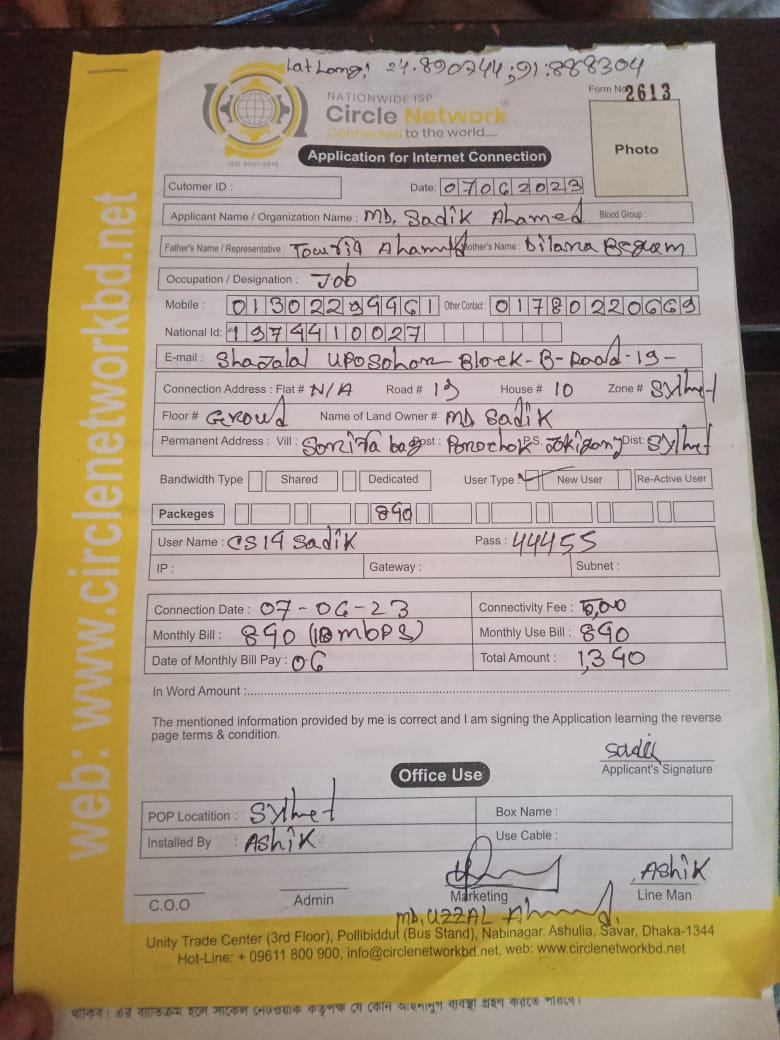 Lat Long: 24.890744; 91.888304
NATIONWIDE ISP
Circle Network
Connected to the world....
ISO 9001:2015
Form No. 2613
Photo
Application for Internet Connection
Cutomer ID :
Date: 07062023
Applicant Name / Organization Name : MD. Sadik Ahamed Blood Group :
Father's Name / Representative : Ahamed Mother's Name : Dilana Begum
Occupation / Designation : Job
Mobile : 01302299961 Other Contact : 01780220669
National Id: 1974410027
E-mail : Shajalal uposohor Block-B-Road-19-
Connection Address : Flat # N/A Road # 19 House # 10 Zone # Sylhet
Floor # Groud Name of Land Owner # MD Sadik
Permanent Address : Vill : Post : P.S. Jokigonj Dist: Sylhet
Bandwidth Type Shared Dedicated User Type : New User Re-Active User
Packeges 890
User Name : CS19 Sadik Pass : 44455
IP : Gateway : Subnet :
Connection Date : 07-06-23 Connectivity Fee :
Monthly Bill : 890 (10 mbPS) Monthly Use Bill : 890
Date of Monthly Bill Pay : 06 Total Amount : 1,390
In Word Amount :
The mentioned information provided by me is correct and I am signing the Application learning the reverse
page terms & condition.
Sadik
Applicant's Signature
Office Use
POP Locatition : Sylhet Box Name :
Installed By : Ashik Use Cable :
Ashik
C.O.O Admin Marketing Line Man
MD. UZZAL Ahmed.
Unity Trade Center (3rd Floor), Pollibiddut (Bus Stand), Nabinagar. Ashulia, Savar, Dhaka-1344
Hot-Line: + 09611 800 900, info@circlenetworkbd.net, web: www.circlenetworkbd.net
থাকিব। এর ব্যতিক্রম হলে সার্কেল নেটওয়ার্ক কতৃপক্ষ যে কোন আইনানুগ ব্যবস্থা গ্রহণ করতে পারবে।
web: www.circlenetworkbd.net